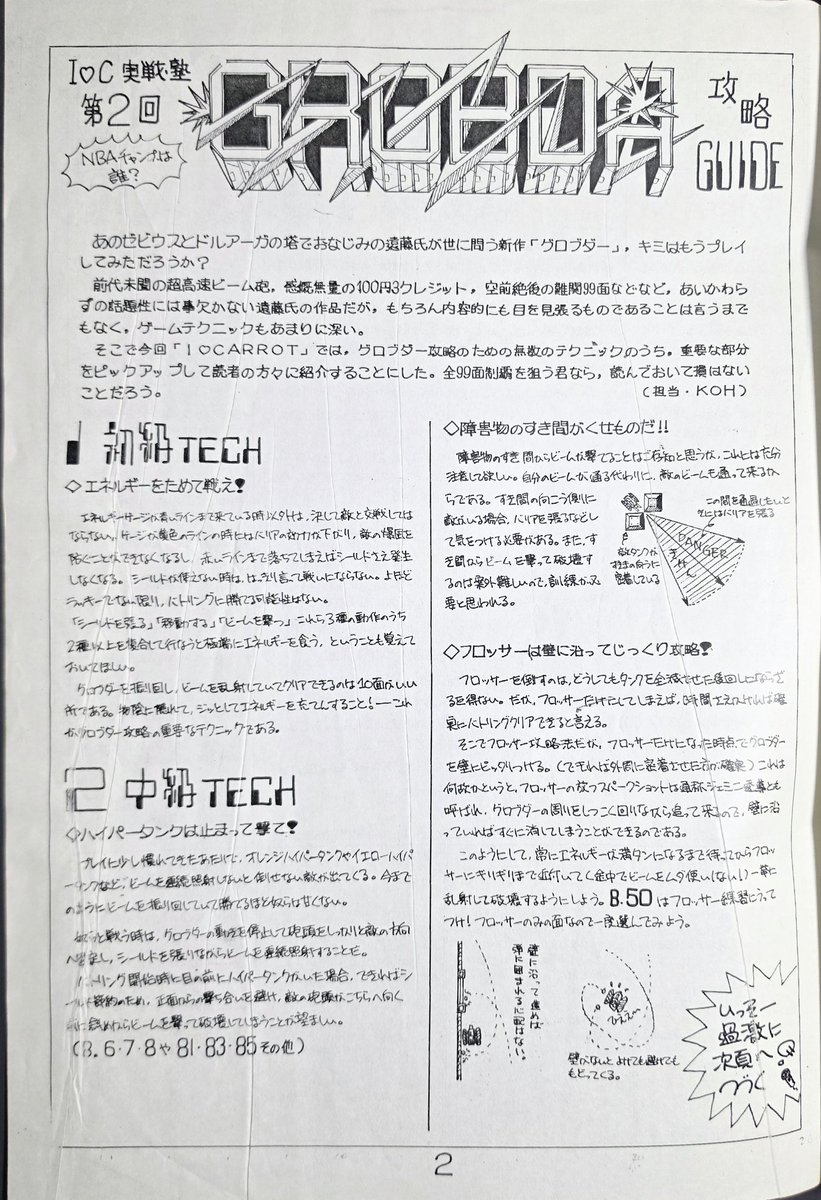 I♡C 実戦・塾
第2回
NBAチャンプは
誰?
GROBDA
攻略
GUIDE
あのゼビウスとドルアーガの塔でおなじみの遠藤氏が世に問う新作「グロブダー」,キミはもうプレイ
してみただろうか?
前代未聞の超高速ビーム砲,感慨無量の100円3クレジット,空前絶後の難関99面などなど,あいかわら
ずの話題性には事欠かない遠藤氏の作品だが,もちろん内容的にも目を見張るものであることは言うまで
もなく,ゲームテクニックもあまりに深い。
そこで今回「I♡CARROT」では,グロブダー攻略のための無数のテクニックのうち,重要な部分
をピックアップして読者の方々に紹介することにした。全99面制覇を狙う君なら,読んでおいて損はない
ことだろう。
(担当・KOH)
1 初級TECH
◇エネルギーをためて戦え!
エネルギーゲージが青いラインまで来ている時以外は,決して敵と交戦しては
ならない。ゲージが黄色のラインの時にはバリアの効力が下がり,敵の爆風を
防ぐことができなくなるし,赤いラインまで落ちてしまえばシールドさえ発生
しなくなる。シールドが使えない時は,はっきり言って戦いにならない。よほど
ラッキーでない限り,バトリングに勝てる可能性はない。
「シールドを張る」「移動する」「ビームを撃つ」これら3種の動作のうち
2種以上を集合して行なうと極端にエネルギーを食う,ということも覚えて
おいてほしい。
グロブダーを振り回し,ビームを乱射していてクリアできるのは10面がいい
所である。物陰に隠れて,ジッとしてエネルギーを充てんすること!──これ
がグロブダー攻略の重要なテクニックである。
2 中級TECH
◇ハイパータンクは止まって撃て!
プレイに少し慣れてきたあたりで,オレンジハイパータンクやイエローハイパ
ータンクなど,ビームを連続照射しないと倒せない敵が出てくる。今まで
のようにビームを振り回していて勝てるほど奴らは甘くない。
戦う時は,グロブダーの動きを停止して砲頭をしっかりと敵の方向
へ固定し,シールドを張りながらビームを連続照射することだ。
バトリング開始時に目の前にハイパータンクがいた場合,できればシ
ールド節約のため,正面からの撃ち合いを避け,敵の砲頭がこちらへ向く
前に斜めからビームを撃って破壊してしまうことが望ましい。
(B.6・7・8や81・83・85その他)
◇障害物のすき間がくせものだ!!
障害物のすき間からビームが撃てることはご存知と思うが,これには充分
注意して欲しい。自分のビームが通る代わりに,敵のビームも通って来るか
らである。すき間の向こう側に
敵がいる場合,バリアを張るなどし
て気をつける必要がある。また,す
き間からビームを撃って破壊す
るのは案外難しいので,訓練が必
要と思われる。
この間を通過したいと
きにはバリアを張る
DANGER
きけん
敵タンクが
すき間の向うに
密着している
◇フロッサーは壁に沿ってじっくり攻略!
フロッサーを倒すのは,どうしてもタンクを全滅させた後回しにならざ
るを得ない。だが,フロッサーだけにしてしまえば,時間さえかければ確
実にバトリングクリアできると言える。
そこでフロッサー攻略法だが,フロッサーだけになった時点でグロブダー
を壁にピッタリつける。(できれば外周に密着させた方が確実)これは
何故かというと,フロッサーの放つスパークショットは通称ジェミニ誘導と
も呼ばれ,グロブダーの周りをしつこく回りながら追って来るので,壁に沿
っていればすぐに消してしまうことができるのである。
このようにして,常にエネルギーが満タンになるまで待ってからフロッ
サーにギリギリまで近付いていく途中でビームをムダ使い(ない)一気に
乱射して破壊するようにしよう。B.50はフロッサー練習にうって
つけ!フロッサーのみの面なので一度選んでみよう。
壁に沿って進めば
弾に囲まれる心配はない。
ひえ〜
壁がないとよけても避けても
もどってくる。
いっそー
過激に
次頁へ
つづく
2